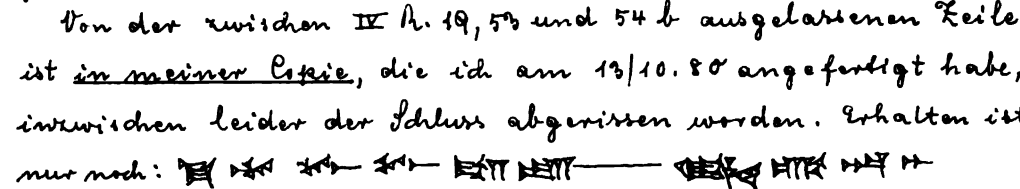 Von der zwischen IV R. 19, 53 und 54 b ausgelassenen Zeile
ist in meiner Copie, die ich am 13/10. 80 angefertigt habe,
inzwischen leider der Schluss abgerissen worden. Erhalten ist
nur noch: